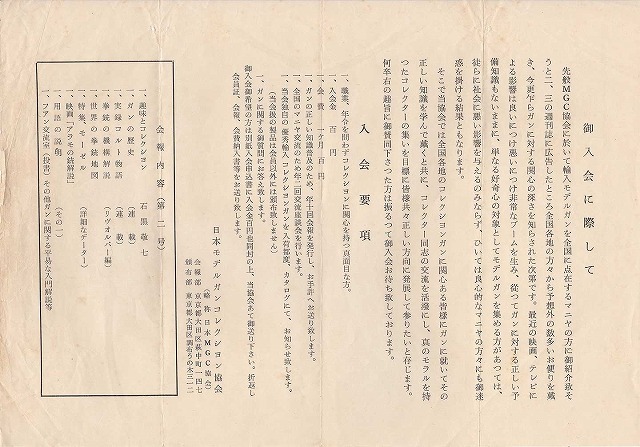 御入会に際して
先般MGC協会に於いて輸入モデルガンを全国に点在するマニヤの方に御紹介致そ
うと二、三の週刊誌に広告したところ全国各地の方々から予想外の数多いお便りを戴
き、今更乍らガンに対する関心の深さを知らされた次第です。最近の映画、テレビに
よる影響は良いにつけ悪いにつけ非常なブームを生み、従つてガンに対する正しい予
備知識もないままに、単なる好奇心の対象としてモデルガンを集める方があつては、
徒らに社会に悪い影響を与えるのみならず、ひいては良心的なマニヤの方々にも御迷
惑を掛ける結果ともなります。
そこで当協会では全国各地のコレクションガンに関心ある皆様にガンに就いてその
正しい知識を学んで戴くと共に、コレクター同志の交流を活溌にし、真のモラルを持
つたコレクターの集いを目標に皆様共々正しい方向に発展して参りたいと存じます。
何卒右の趣旨に御賛同下さつた方は振るつて御入会お待ち致しております。
入会要項
一、職業、年令を問わずコレクションに関心を持つ真面目な方。
一、入会金 百円
一、会費 一ヵ月 百円
一、ガンの正しい知識普及のため、年十回会報を発行し、お手許へお送り致します。
一、全国のマニヤ交流のため年二回交流座談会を行います。
一、当会独自の優秀輸入コレクションガンを入荷都度、カタログにて、お知らせ致します。
（当会扱の製品は会員以外には頒布致しません）
一、ガンに関する御質問にお答え致します。
御入会御希望の方は別紙入会申込書に入会金百円を同封の上、当協会あて御送り下さい。折返し
会員証、会報、会費納入書等をお送り致します。
日本モデルガンコレクション協会
（略称 日本MGC協会）
会報部 東京都大田区萩中町一四七
頒布部 東京都大田区調布うの木三一二
会報内容（第二号）
一、趣味とコレクション 石黒敬七
一、ガンの歴史 （連載）
一、実録コルト物語 （連載）
一、拳銃の機構解説 （リヴオルバー編）
一、世界の拳銃地図
一、特集、モーゼル （詳細なデーター）
一、映画「アラモの銃解説」
一、用語の説明 （その一）
一、フアン交流室（投書）その他ガンに関する平易な入門解説等